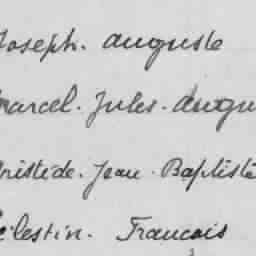 Joseph. Auguste
Marcel. Jules. Augu
Aristide. Jean. Baptiste
Célestin. Francois